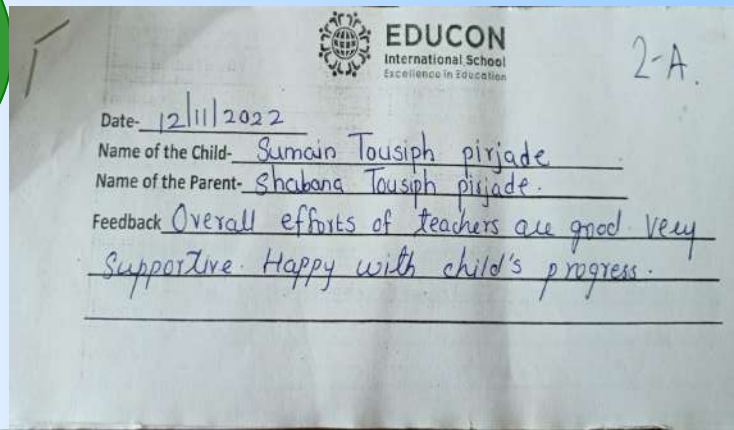 EDUCON
International School
Excellence in Education
2-A.
Date- 12/11/2022
Name of the Child- Sumain Tousiph pirjade
Name of the Parent- Shabana Tousiph pirjade.
Feedback Overall efforts of teachers are good. Very
Supportive. Happy with child's progress.